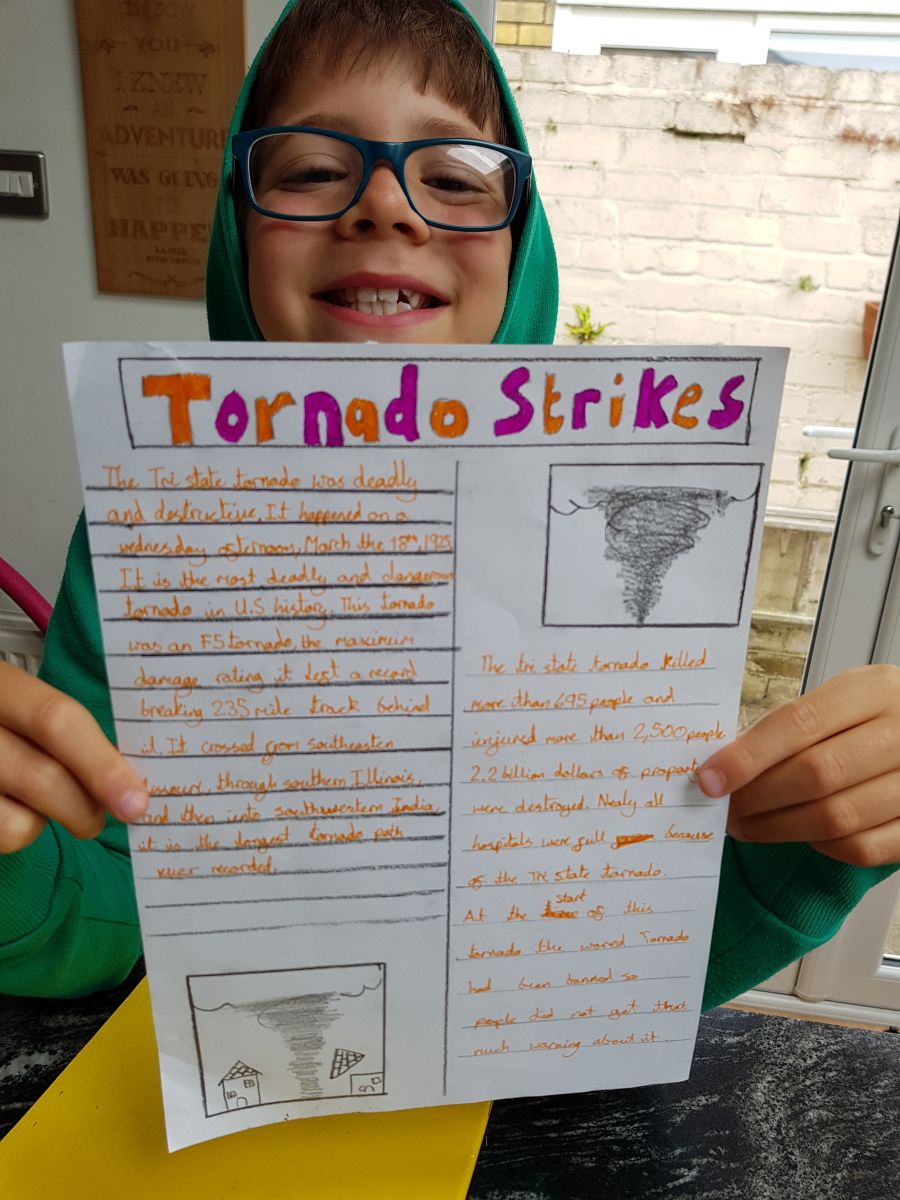 YOU
I KNEW
AN
ADVENTURE
WAS GOING
TO
HAPPEN
Tornado Strikes
The Tri state tornado was deadly
and destructive. It happened on a
wednesday afternoon, March the 18th, 1925
It is the most deadly and dangerous
tornado in U.S history. This tornado
was an F5 tornado, the maximum
damage rating it left a record
breaking 235 mile track behind
it. It crossed from southeasten
through southern Illinois,
and then into southwestern India,
it is the longest tornado path
ever recorded.
The tri state tornado killed
more than 695 people and
injured more than 2,500 people
2.2 billion dollars of
were destroyed. Nealy all
hospitals were full because
of the Tri state tornado.
At the start of this
tornado the word Tornado
had been banned so
people did not get that
much warning about it.